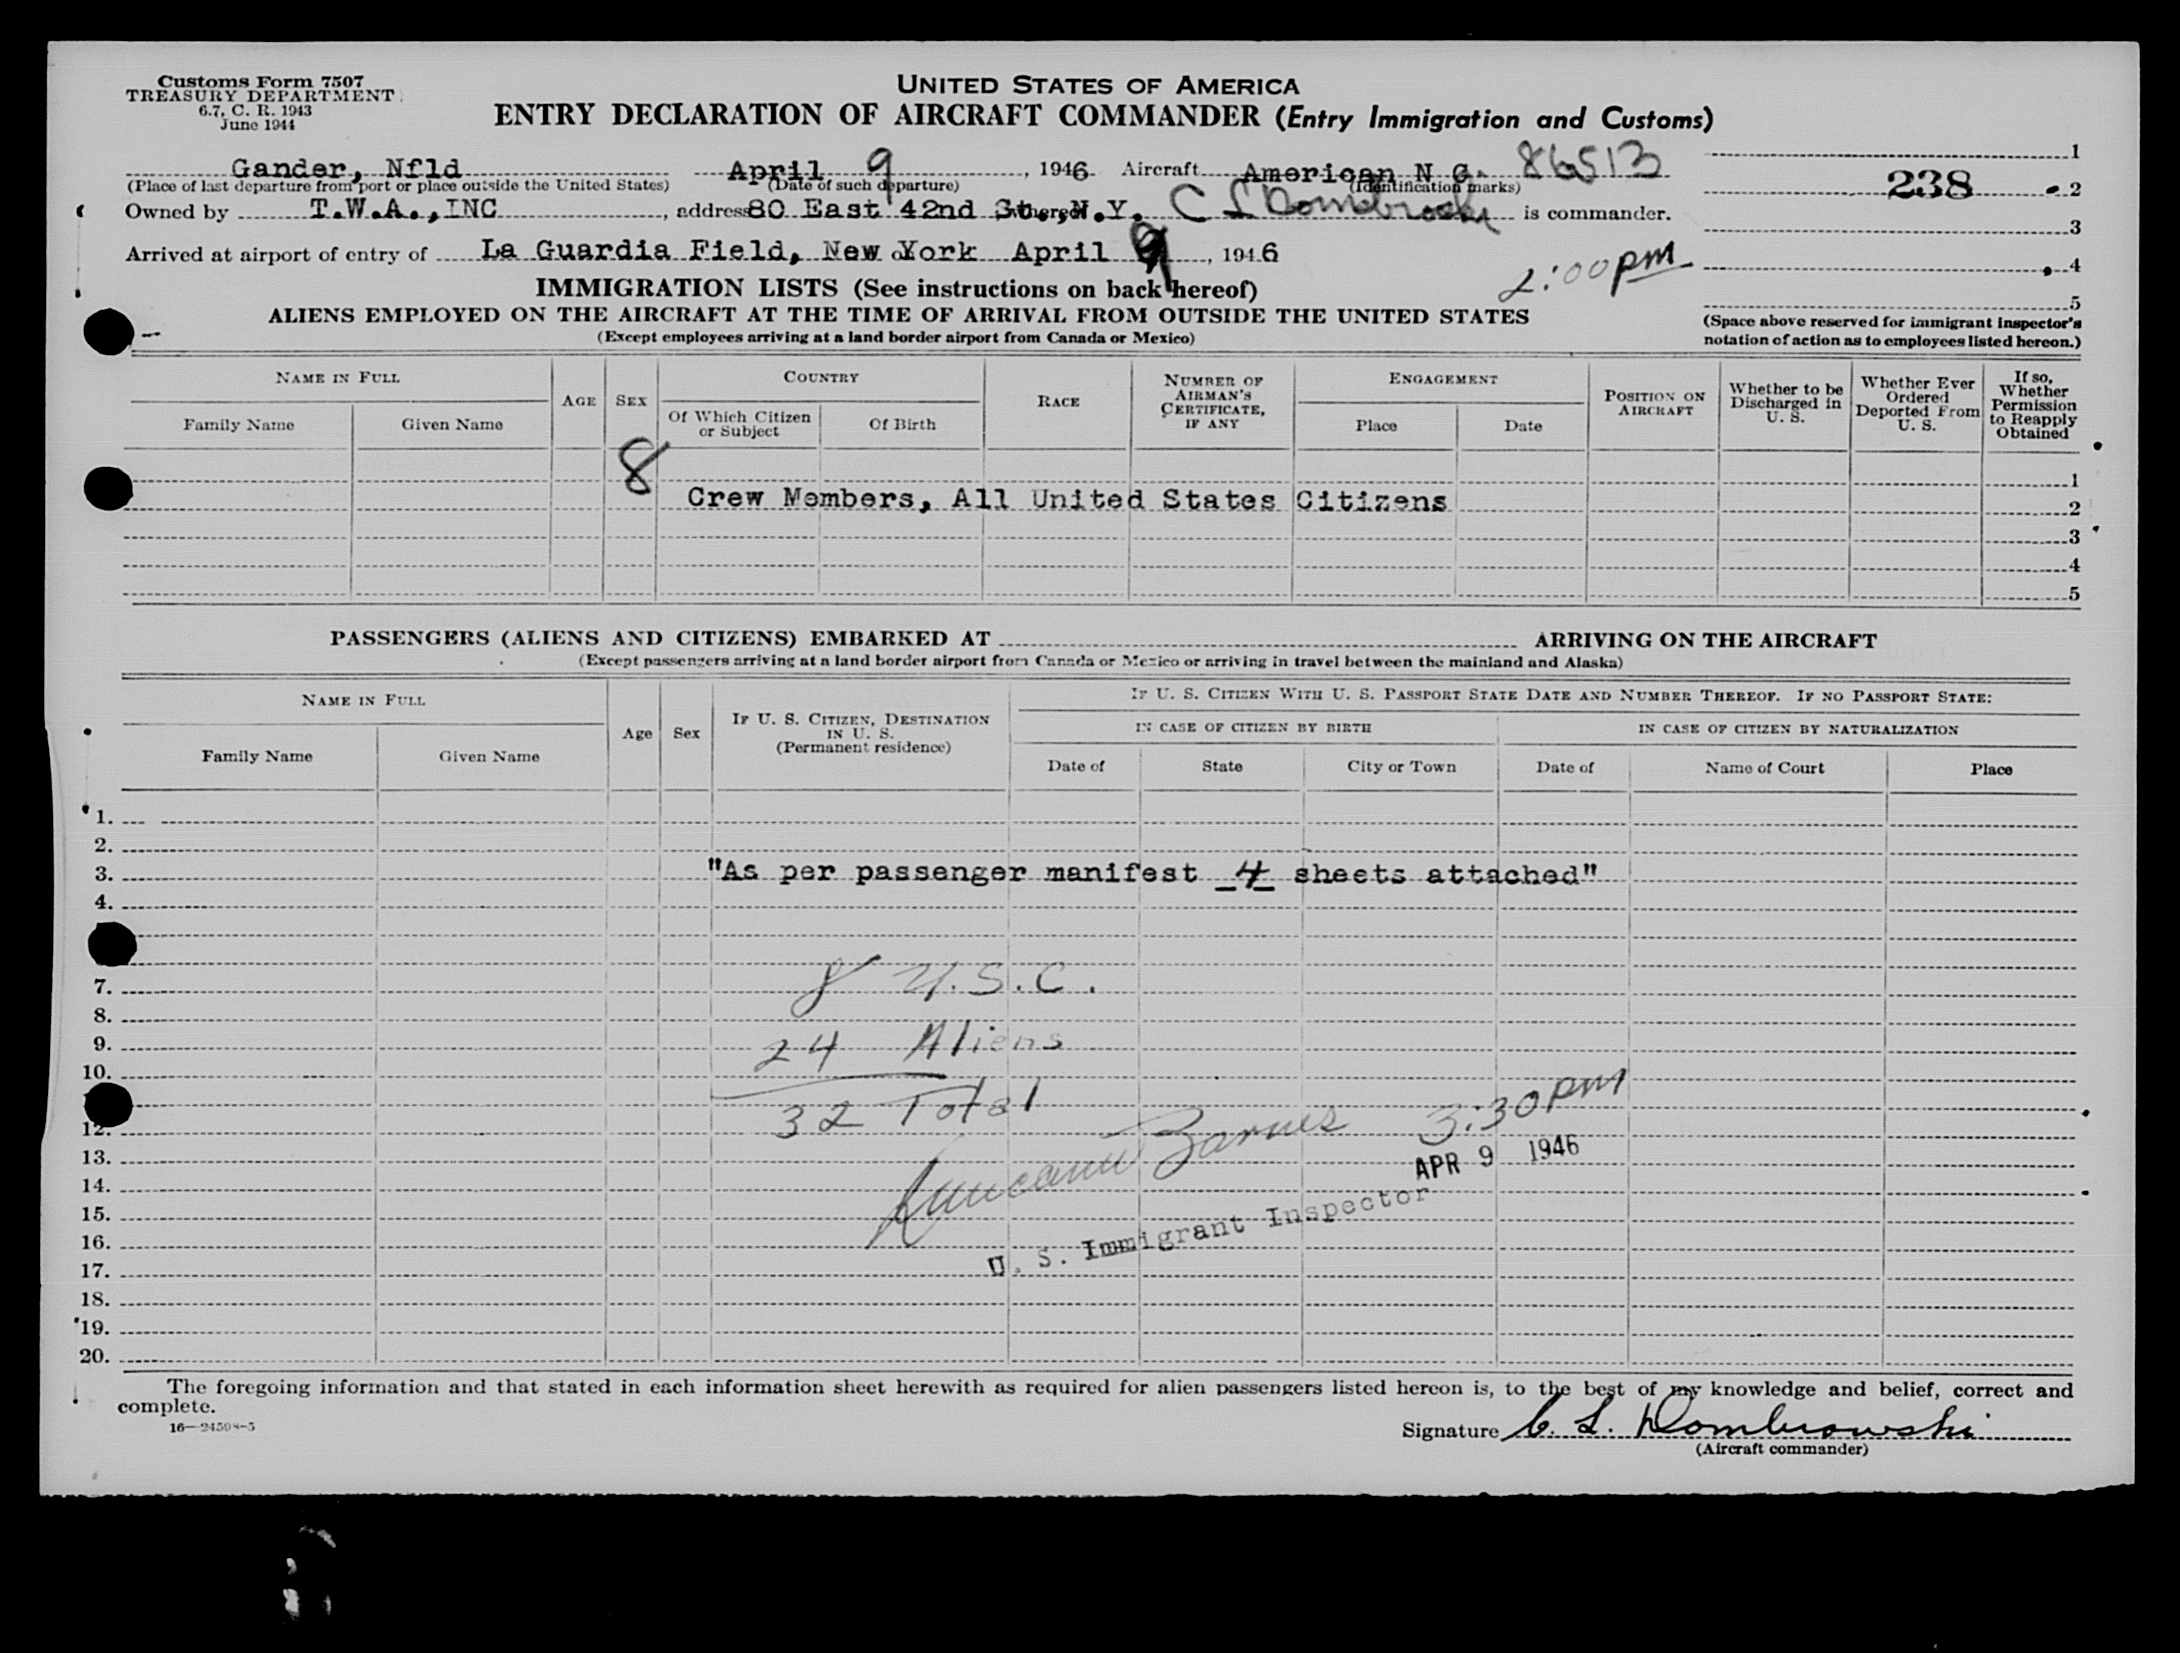 Customs Form 7507
TREASURY DEPARTMENT
6.7, C. R. 1943
June 1944
UNITED STATES OF AMERICA
ENTRY DECLARATION OF AIRCRAFT COMMANDER (Entry Immigration and Customs)
Gander, Nfld April 9, 1946 Aircraft American N C. 86513
(Place of last departure from port or place outside the United States) (Date of such departure) (Identification marks)
Owned by T.W.A.,INC, address 80 East 42nd St.,N.Y. C L Dombrowski is commander.
Arrived at airport of entry of La Guardia Field, New York April 9, 1946
2:00 pm
1
238 2
3
4
5
(Space above reserved for immigrant inspector's
notation of action as to employees listed hereon.)
IMMIGRATION LISTS (See instructions on back hereof)
ALIENS EMPLOYED ON THE AIRCRAFT AT THE TIME OF ARRIVAL FROM OUTSIDE THE UNITED STATES
(Except employees arriving at a land border airport from Canada or Mexico)
NAME IN FULL
Family Name Given Name
AGE SEX
COUNTRY
Of Which Citizen or Subject Of Birth
RACE
NUMBER OF AIRMAN'S CERTIFICATE, IF ANY
ENGAGEMENT
Place Date
POSITION ON AIRCRAFT
Whether to be Discharged in U. S.
Whether Ever Ordered Deported From U. S.
If so, Whether Permission to Reapply Obtained
1
8 Crew Members, All United States Citizens 2
3
4
5
PASSENGERS (ALIENS AND CITIZENS) EMBARKED AT ARRIVING ON THE AIRCRAFT
(Except passengers arriving at a land border airport from Canada or Mexico or arriving in travel between the mainland and Alaska)
NAME IN FULL
Family Name Given Name
Age Sex
IF U. S. CITIZEN, DESTINATION IN U. S.
(Permanent residence)
IF U. S. CITIZEN WITH U. S. PASSPORT STATE DATE AND NUMBER THEREOF. IF NO PASSPORT STATE:
IN CASE OF CITIZEN BY BIRTH IN CASE OF CITIZEN BY NATURALIZATION
Date of State City or Town Date of Name of Court Place
1.
2.
3. "As per passenger manifest 4 sheets attached"
4.
7. 8 U.S.C.
8.
9. 24 Aliens
10.
32 Total
12. Barnes 3:30 pm
13. APR 9 1946
14.
15. U. S. Immigrant Inspector
16.
17.
18.
19.
20.
The foregoing information and that stated in each information sheet herewith as required for alien passengers listed hereon is, to the best of my knowledge and belief, correct and
complete.
16—24508-5
Signature C. L. Dombrowski
(Aircraft commander)